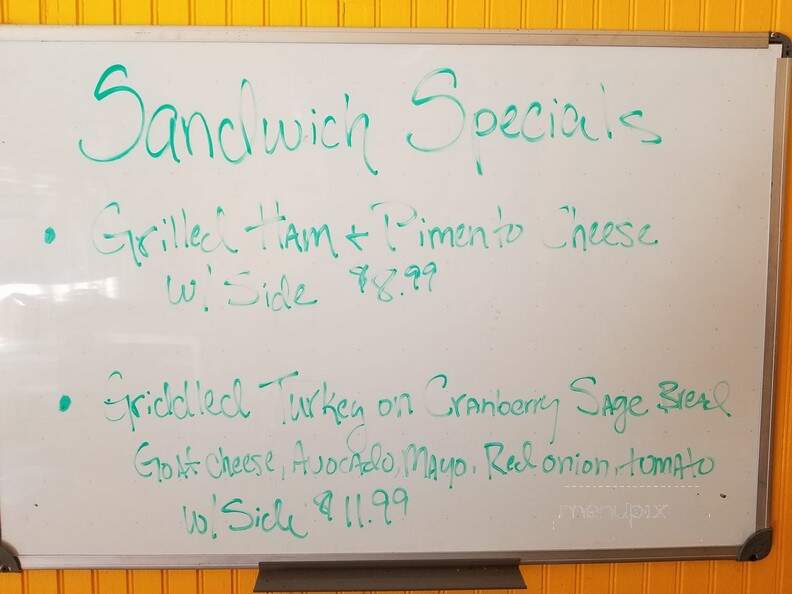 Sandwich Specials
• Grilled Ham + Pimento Cheese
w/ Side $8.99
• Griddled Turkey on Cranberry Sage Bread
Goat cheese, Avocado, Mayo, Red onion, tomato
w/ Side $11.99
menupix